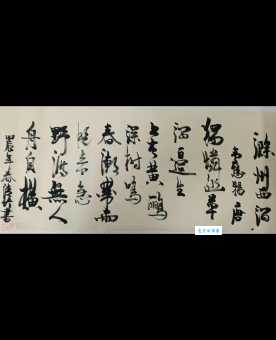 滁州西涧
韦应物 唐
独怜幽草
涧边生
上有黄鹂
深树鸣
春潮带雨
晚来急
野渡无人
舟自横